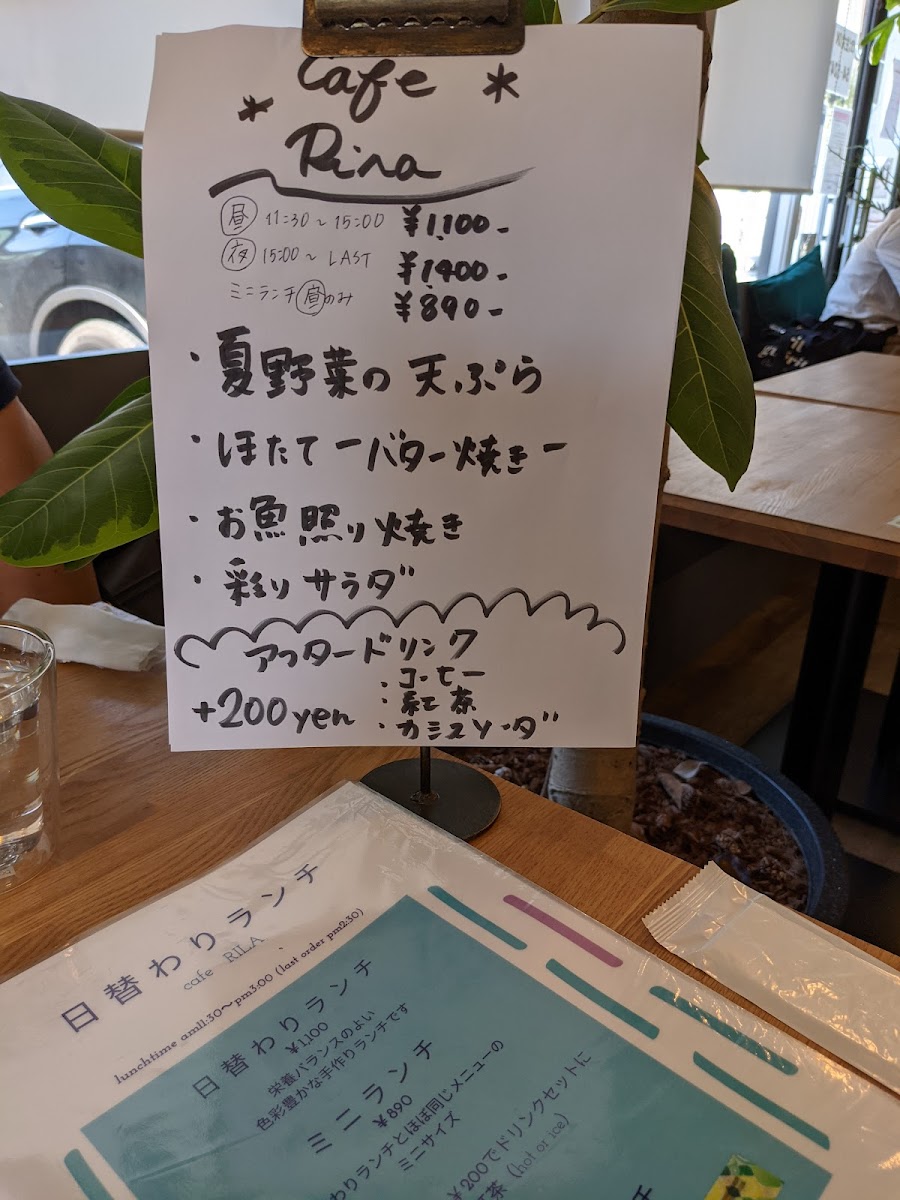 Cafe
* Rira *
昼 11:30～15:00 ¥1,100-
夜 15:00～LAST ¥1,400-
ミニランチ昼のみ ¥890-
・夏野菜の天ぷら
・ほたてーバター焼きー
・お魚照り焼き
・彩りサラダ
アフタードリンク
+200yen
・コーヒー
・紅茶
・カシスソーダ
日替わりランチ
cafe RILA
lunchtime am11:30～pm3:00 (last order pm2:30)
日替わりランチ
¥1,100
栄養バランスのよい
色彩豊かな手作りランチです
ミニランチ
¥890
わりランチとほぼ同じメニューの
ミニサイズ
¥200でドリンクセットに
茶 (hot or ice)